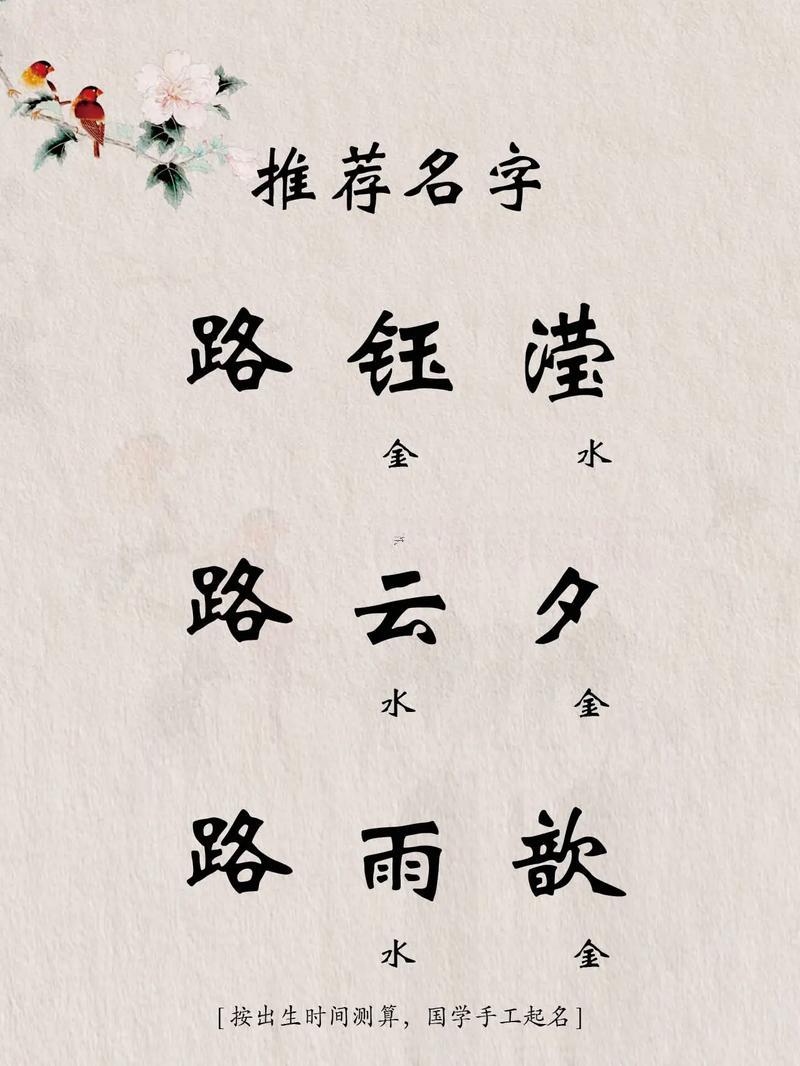 推荐名字
路 钰 滢
金 水
路 云 夕
水 金
路 雨 歆
水 金
[按出生时间测算，国学手工起名]